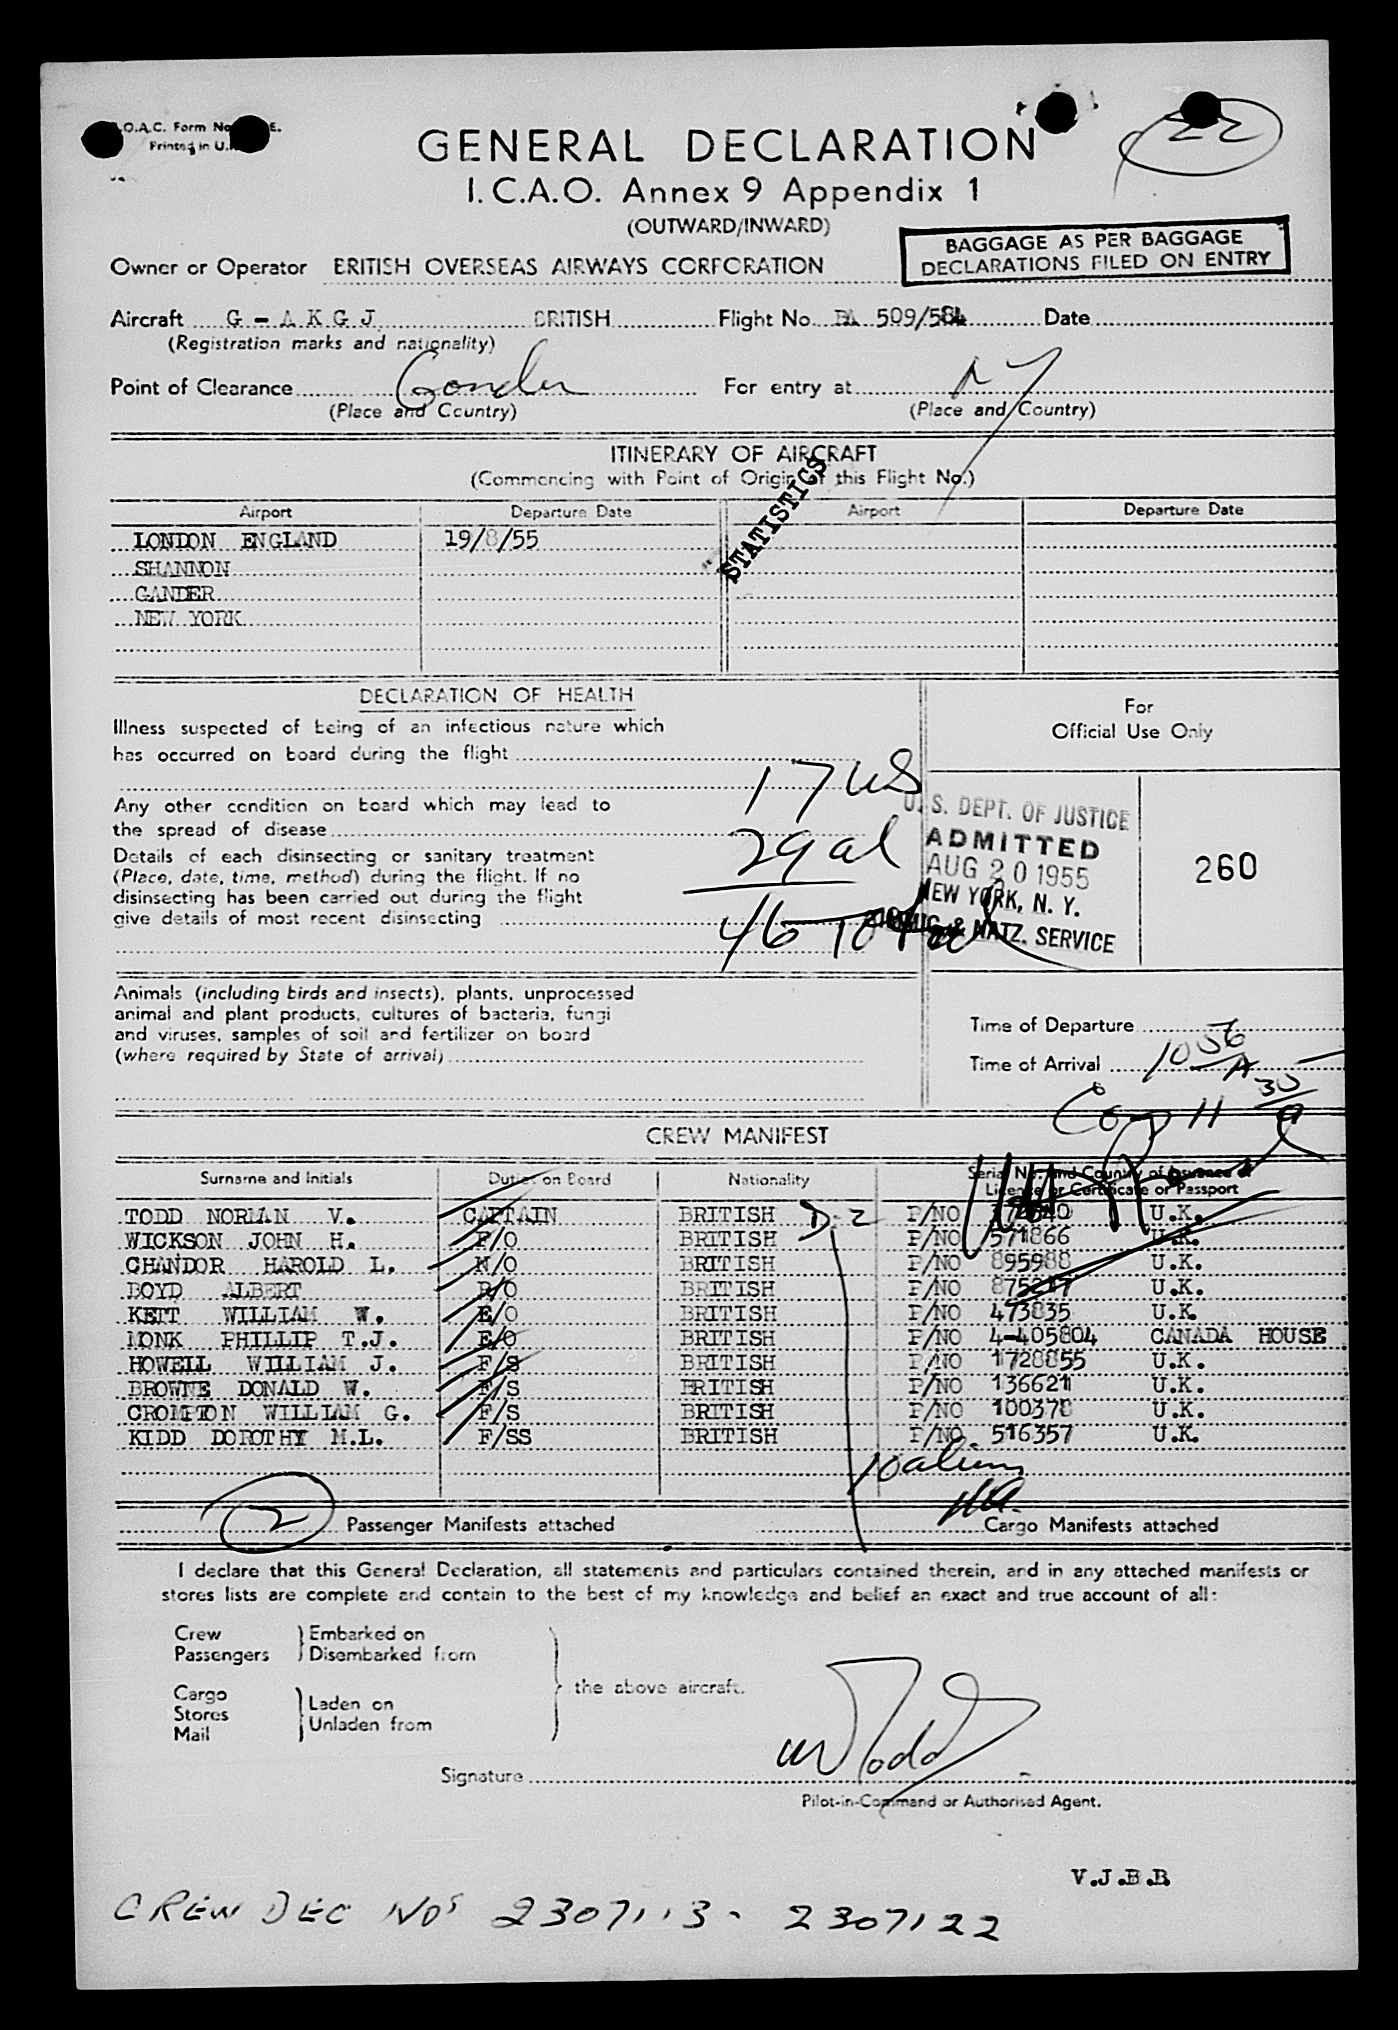 B.O.A.C. Form No. E.
Printed in U.K.
22
GENERAL DECLARATION
I.C.A.O. Annex 9 Appendix 1
(OUTWARD/INWARD)
BAGGAGE AS PER BAGGAGE
DECLARATIONS FILED ON ENTRY
Owner or Operator BRITISH OVERSEAS AIRWAYS CORPORATION
Aircraft G - A K G J BRITISH Flight No. BA 509/584 Date
(Registration marks and nationality)
Point of Clearance Gander For entry at NY
(Place and Country) (Place and Country)
ITINERARY OF AIRCRAFT
(Commencing with Point of Origin of this Flight No.)
STATISTICS
Airport Departure Date Airport Departure Date
LONDON ENGLAND 19/8/55
SHANNON
GANDER
NEW YORK
DECLARATION OF HEALTH
Illness suspected of being of an infectious nature which
has occurred on board during the flight
Any other condition on board which may lead to
the spread of disease
Details of each disinsecting or sanitary treatment
(Place, date, time, method) during the flight. If no
disinsecting has been carried out during the flight
give details of most recent disinsecting
17 US
29 al
46 Total
For
Official Use Only
U.S. DEPT. OF JUSTICE
ADMITTED
AUG 20 1955
NEW YORK, N. Y.
IMMIG. & NATZ. SERVICE
260
Animals (including birds and insects), plants, unprocessed
animal and plant products, cultures of bacteria, fungi
and viruses, samples of soil and fertilizer on board
(where required by State of arrival)
Time of Departure
Time of Arrival 1056 A
Comp 11 30/A
CREW MANIFEST
Surname and Initials Duties on Board Nationality Serial No. and Country of Issuance of
Licence or Certificate or Passport
TODD NORMAN V. CAPTAIN BRITISH D-2 P/NO U.K.
WICKSON JOHN H. F/O BRITISH P/NO 571866 U.K.
CHANDOR HAROLD L. N/O BRITISH P/NO 895988 U.K.
BOYD ALBERT R/O BRITISH P/NO 875217 U.K.
KETT WILLIAM W. E/O BRITISH P/NO 473835 U.K.
MONK PHILLIP T.J. E/O BRITISH P/NO 4-405804 CANADA HOUSE
HOWELL WILLIAM J. F/S BRITISH P/NO 1728855 U.K.
BROWNE DONALD W. F/S BRITISH P/NO 136621 U.K.
CROMPTON WILLIAM G. F/S BRITISH P/NO 100378 U.K.
KIDD DOROTHY M.L. F/SS BRITISH P/NO. 516357 U.K.
10 aliens
2 Passenger Manifests attached Cargo Manifests attached
I declare that this General Declaration, all statements and particulars contained therein, and in any attached manifests or
stores lists are complete and contain to the best of my knowledge and belief an exact and true account of all:
Crew Embarked on
Passengers Disembarked from
the above aircraft.
Cargo
Stores Laden on
Mail Unladen from
Signature NV Todd
Pilot-in-Command or Authorised Agent.
V.J.B.B.
CREW DEC NOS 2307113 - 2307122